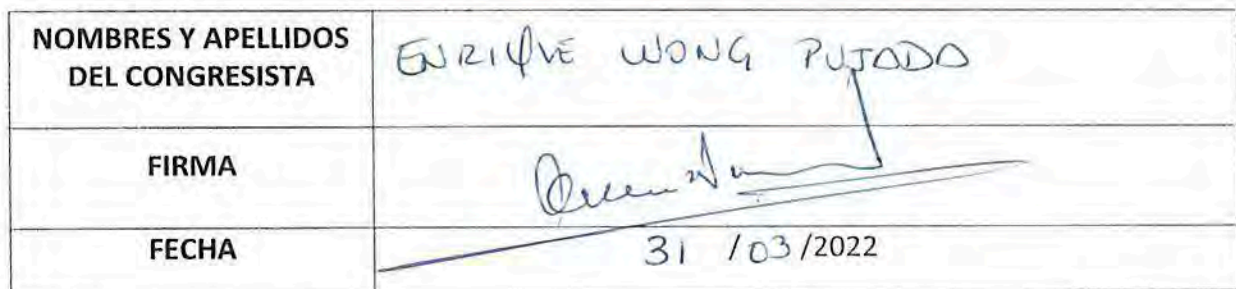 NOMBRES Y APELLIDOS
DEL CONGRESISTA
ENRIQUE WONG PUJADA
FIRMA
FECHA
31 /03/2022